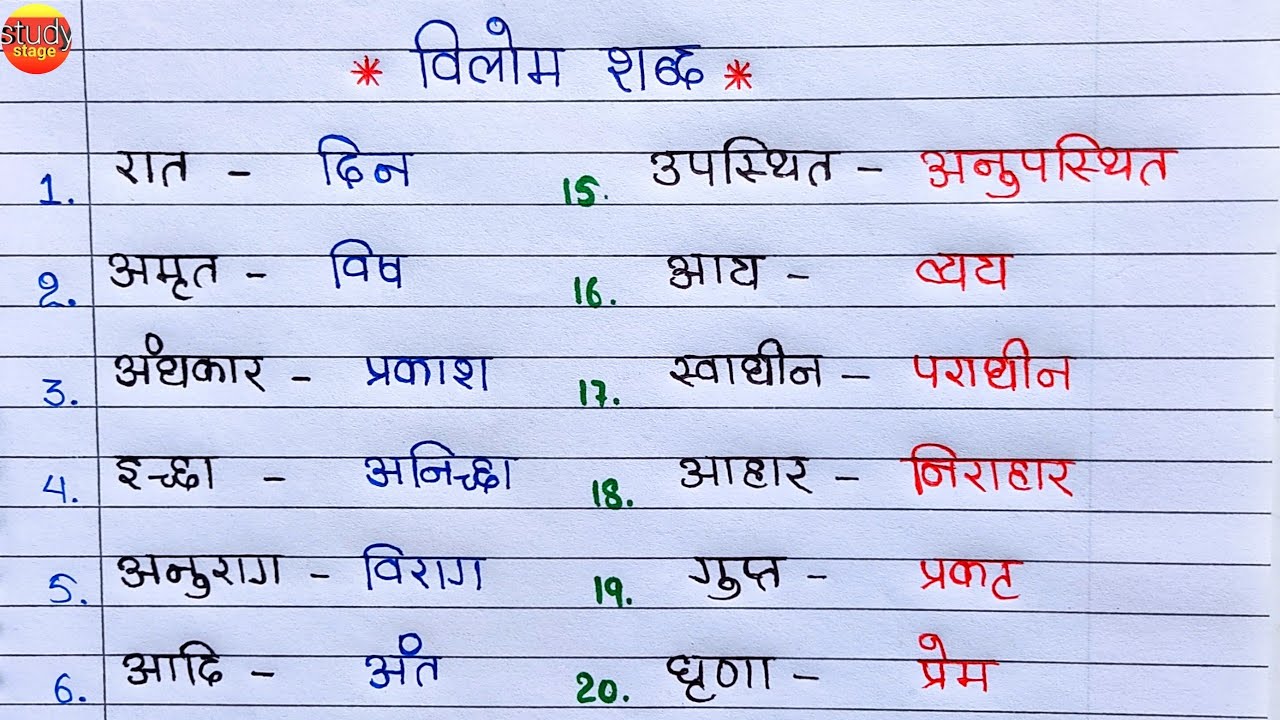 study
stage
* विलोम शब्द *
1. रात - दिन 15. उपस्थित - अनुपस्थित
2. अमृत - विष 16. आय - व्यय
3. अंधकार - प्रकाश 17. स्वाधीन - पराधीन
4. इच्छा - अनिच्छा 18. आहार - निराहार
5. अनुराग - विराग 19. गुप्त - प्रकट
6. आदि - अंत 20. घृणा - प्रेम